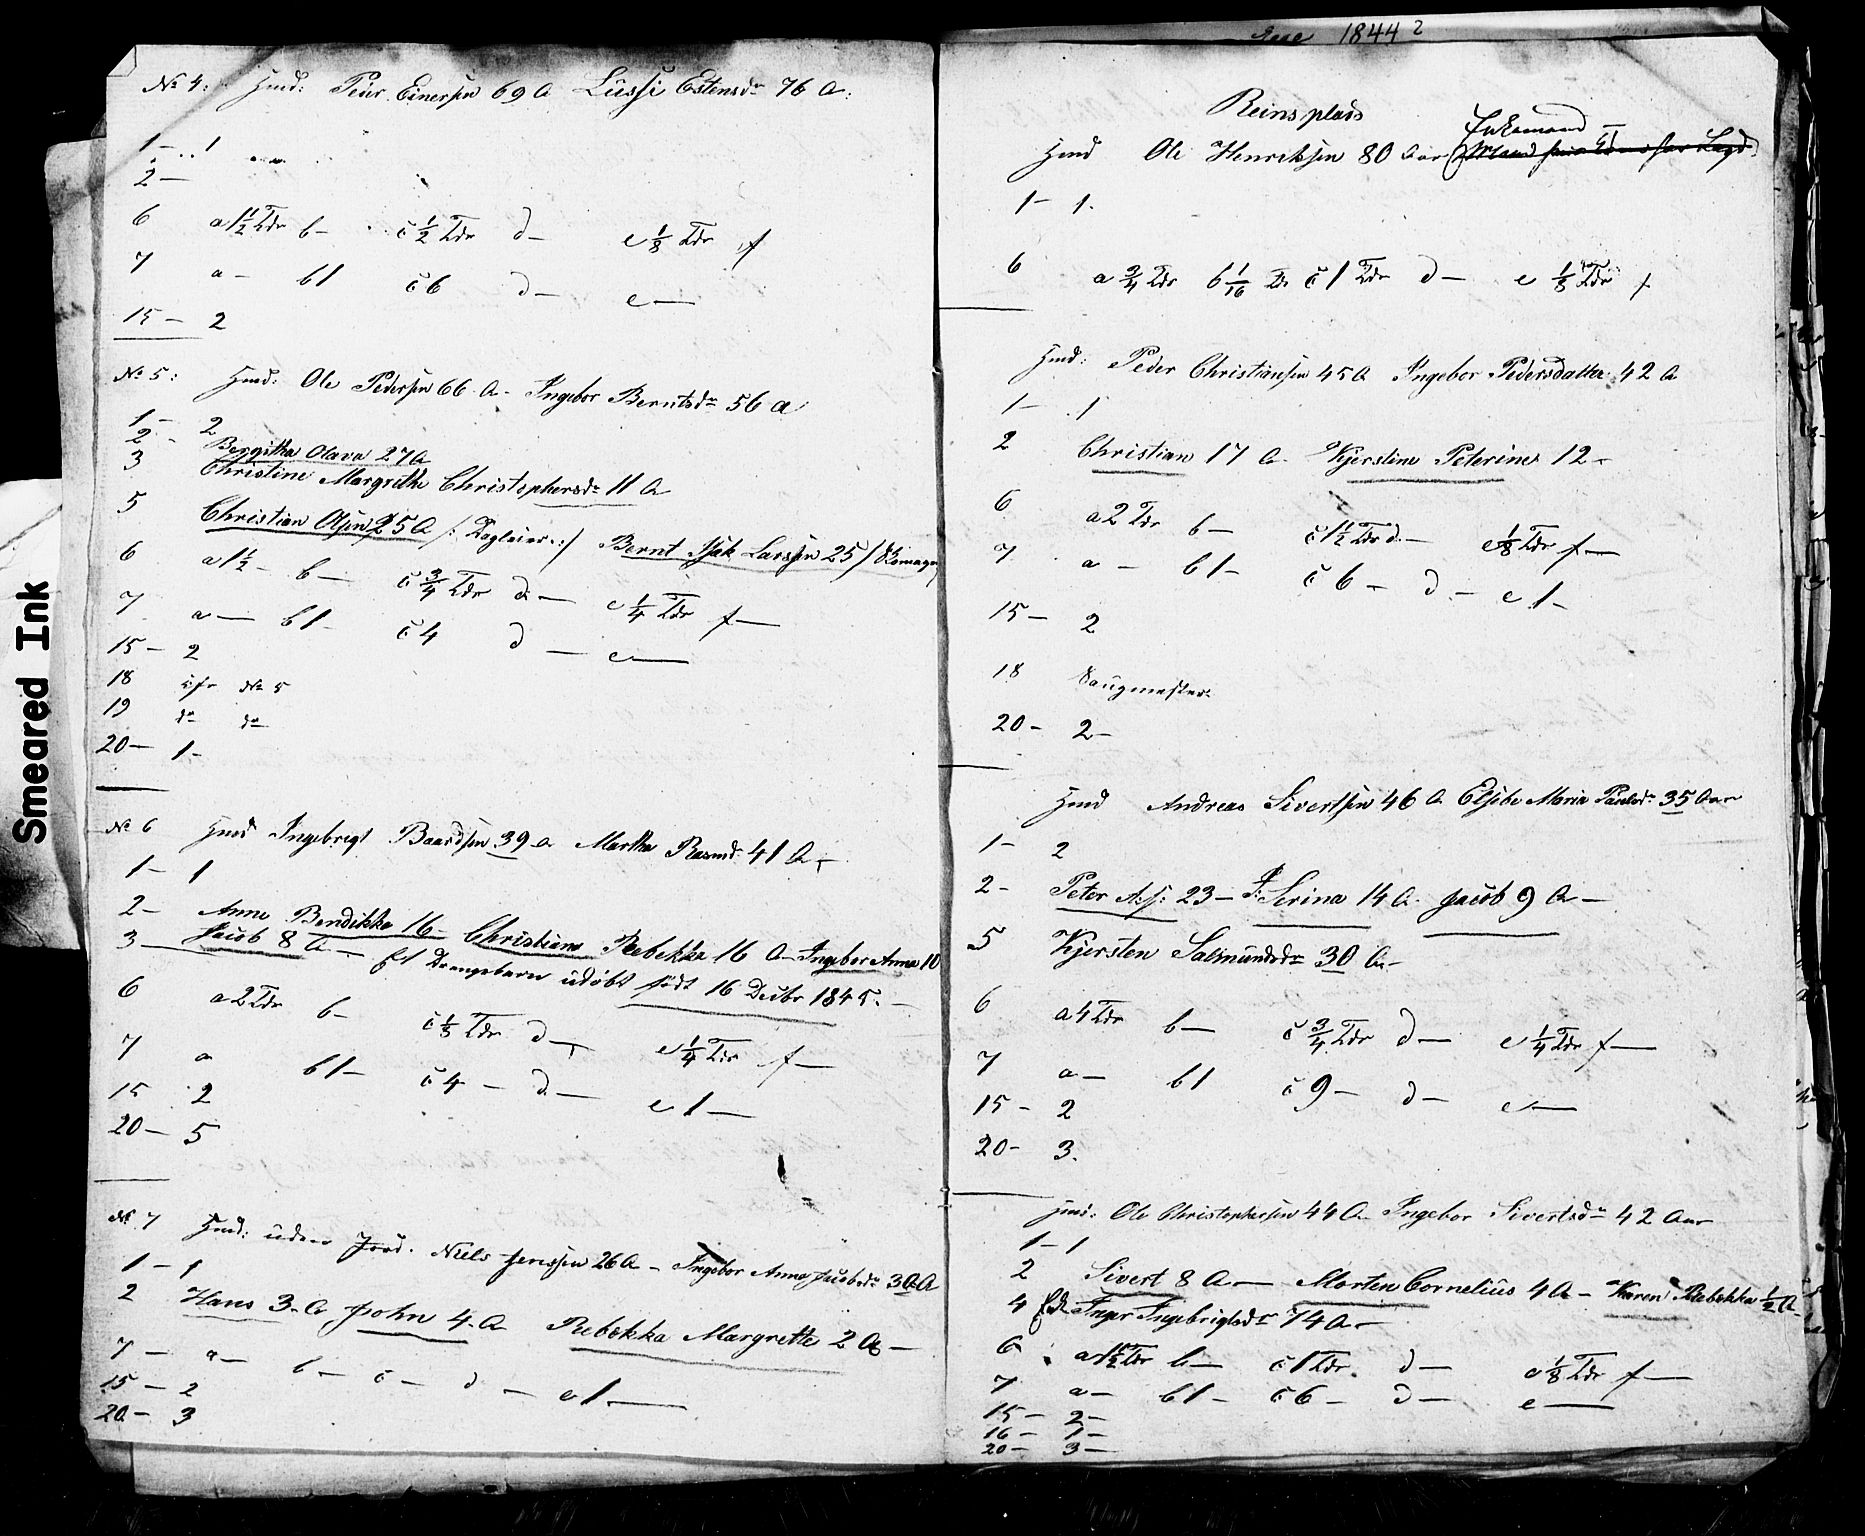 Smeared Ink
No 4: Hmd: Peder Einersen 69 A Lussi Estensdr 76 A:
1 — 1
2 —
6 a 1½ Tdr b — c ½ Tdr d — e ⅛ Tdr f
7 a — b 1 c 6 d — e —
15 — 2
No 5: Hmd: Ole Pedersen 66 A — Ingebor Berntsdr 56 A
1 — 2
2 — Bergitha Olava 27 A
3 Christine Margrethe Christophersdr 11 A
5 Christian Olsen 25 A /: Dagleier :/ Bernt Isak Larssen 25 /
6 a 1½ — b — c ¾ Tdr d — e ¼ Tdr f —
7 a — b 1 — c 4 d — e —
15 — 2
18 No 5
19 do do
20 — 1 —
No 6 Hmd Ingebrigt Baardsen 39 A Martha Rasmd 41 A —
1 — 1
2 — Anne Bendikke 16 — Christiane Rebekka 16 A — Ingebor Anna 10
3 — Jacob 8 A — Et Drengebarn udøbt født 16 Decbr 1845 —
6 a 2 Tdr b — c ⅓ Tdr d — e ¼ Tdr f —
7 a b 1 — c 4 — d — e 1 —
15 2
20 — 5
No 7 Hmd: uden Jord. Niels Jenssen 26 A — Ingebor Anna Jacobsdr 30 A
1 — 1
2 Hans 3 A John 4 A Rebekka Margrethe 2 A —
7 — a — b — c — d — e 1 —
15 — 2
20 — 3
1844 ?
Reinsplads
Hmd Ole Henriksen 80 Aar
1 — 1.
6 a ¾ Tdr b 1/16 Tdr c 1 Tdr d — e ⅛ Tdr f
Hmd: Peder Christiansen 45 A Ingebor Pedersdatter 42 A
1 — 1
2 Christian 17 A Kjerstine Peterine 12 —
6 a 2 Tdr b — c 1½ Tdr d — e ⅛ Tdr f —
7 a — b 1 — c 6 — d — e 1 —
15 — 2
18 Saugmester
20 — 2 —
Hmd Andreas Sivertsen 46 A Elsebe Maria Paulsdr 35 Aar
1 — 2
2 — Peter A:S: 23 — Serina 14 A Jacob 9 A —
5 Kjersten Salmundsdr 30 A —
6 a 4 Tdr b — c ¾ Tdr d — e ¼ Tdr f —
7 a — b 1 c 9 — d — e —
15 — 2
20 — 3.
Hmd: Ole Christophersen 44 A Ingebor Sivertsdr 42 Aar
1 — 1
2 Sivert 8 A — Morten Cornelius 4 A — Karen Rebekka ½ A
4 Inger Ingebrigtsdr 74 A —
6 a 1½ Tdr b — c 1 Tdr. d — e ⅛ Tdr f —
7 a — b 1 — c 6 — d — e —
15 — 2 —
16 — 1 —
20 — 3 —